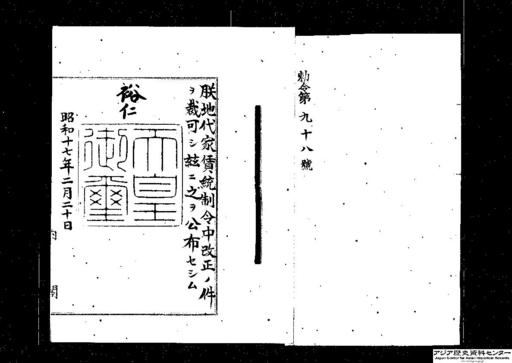 勅令第九十八號
朕地代家賃統制令中改正ノ件
ヲ裁可シ玆ニ之ヲ公布セシム
裕仁
天皇御璽
昭和十七年二月二十日
内閣
アジア歴史資料センター
Japan Center for Asian Historical Records